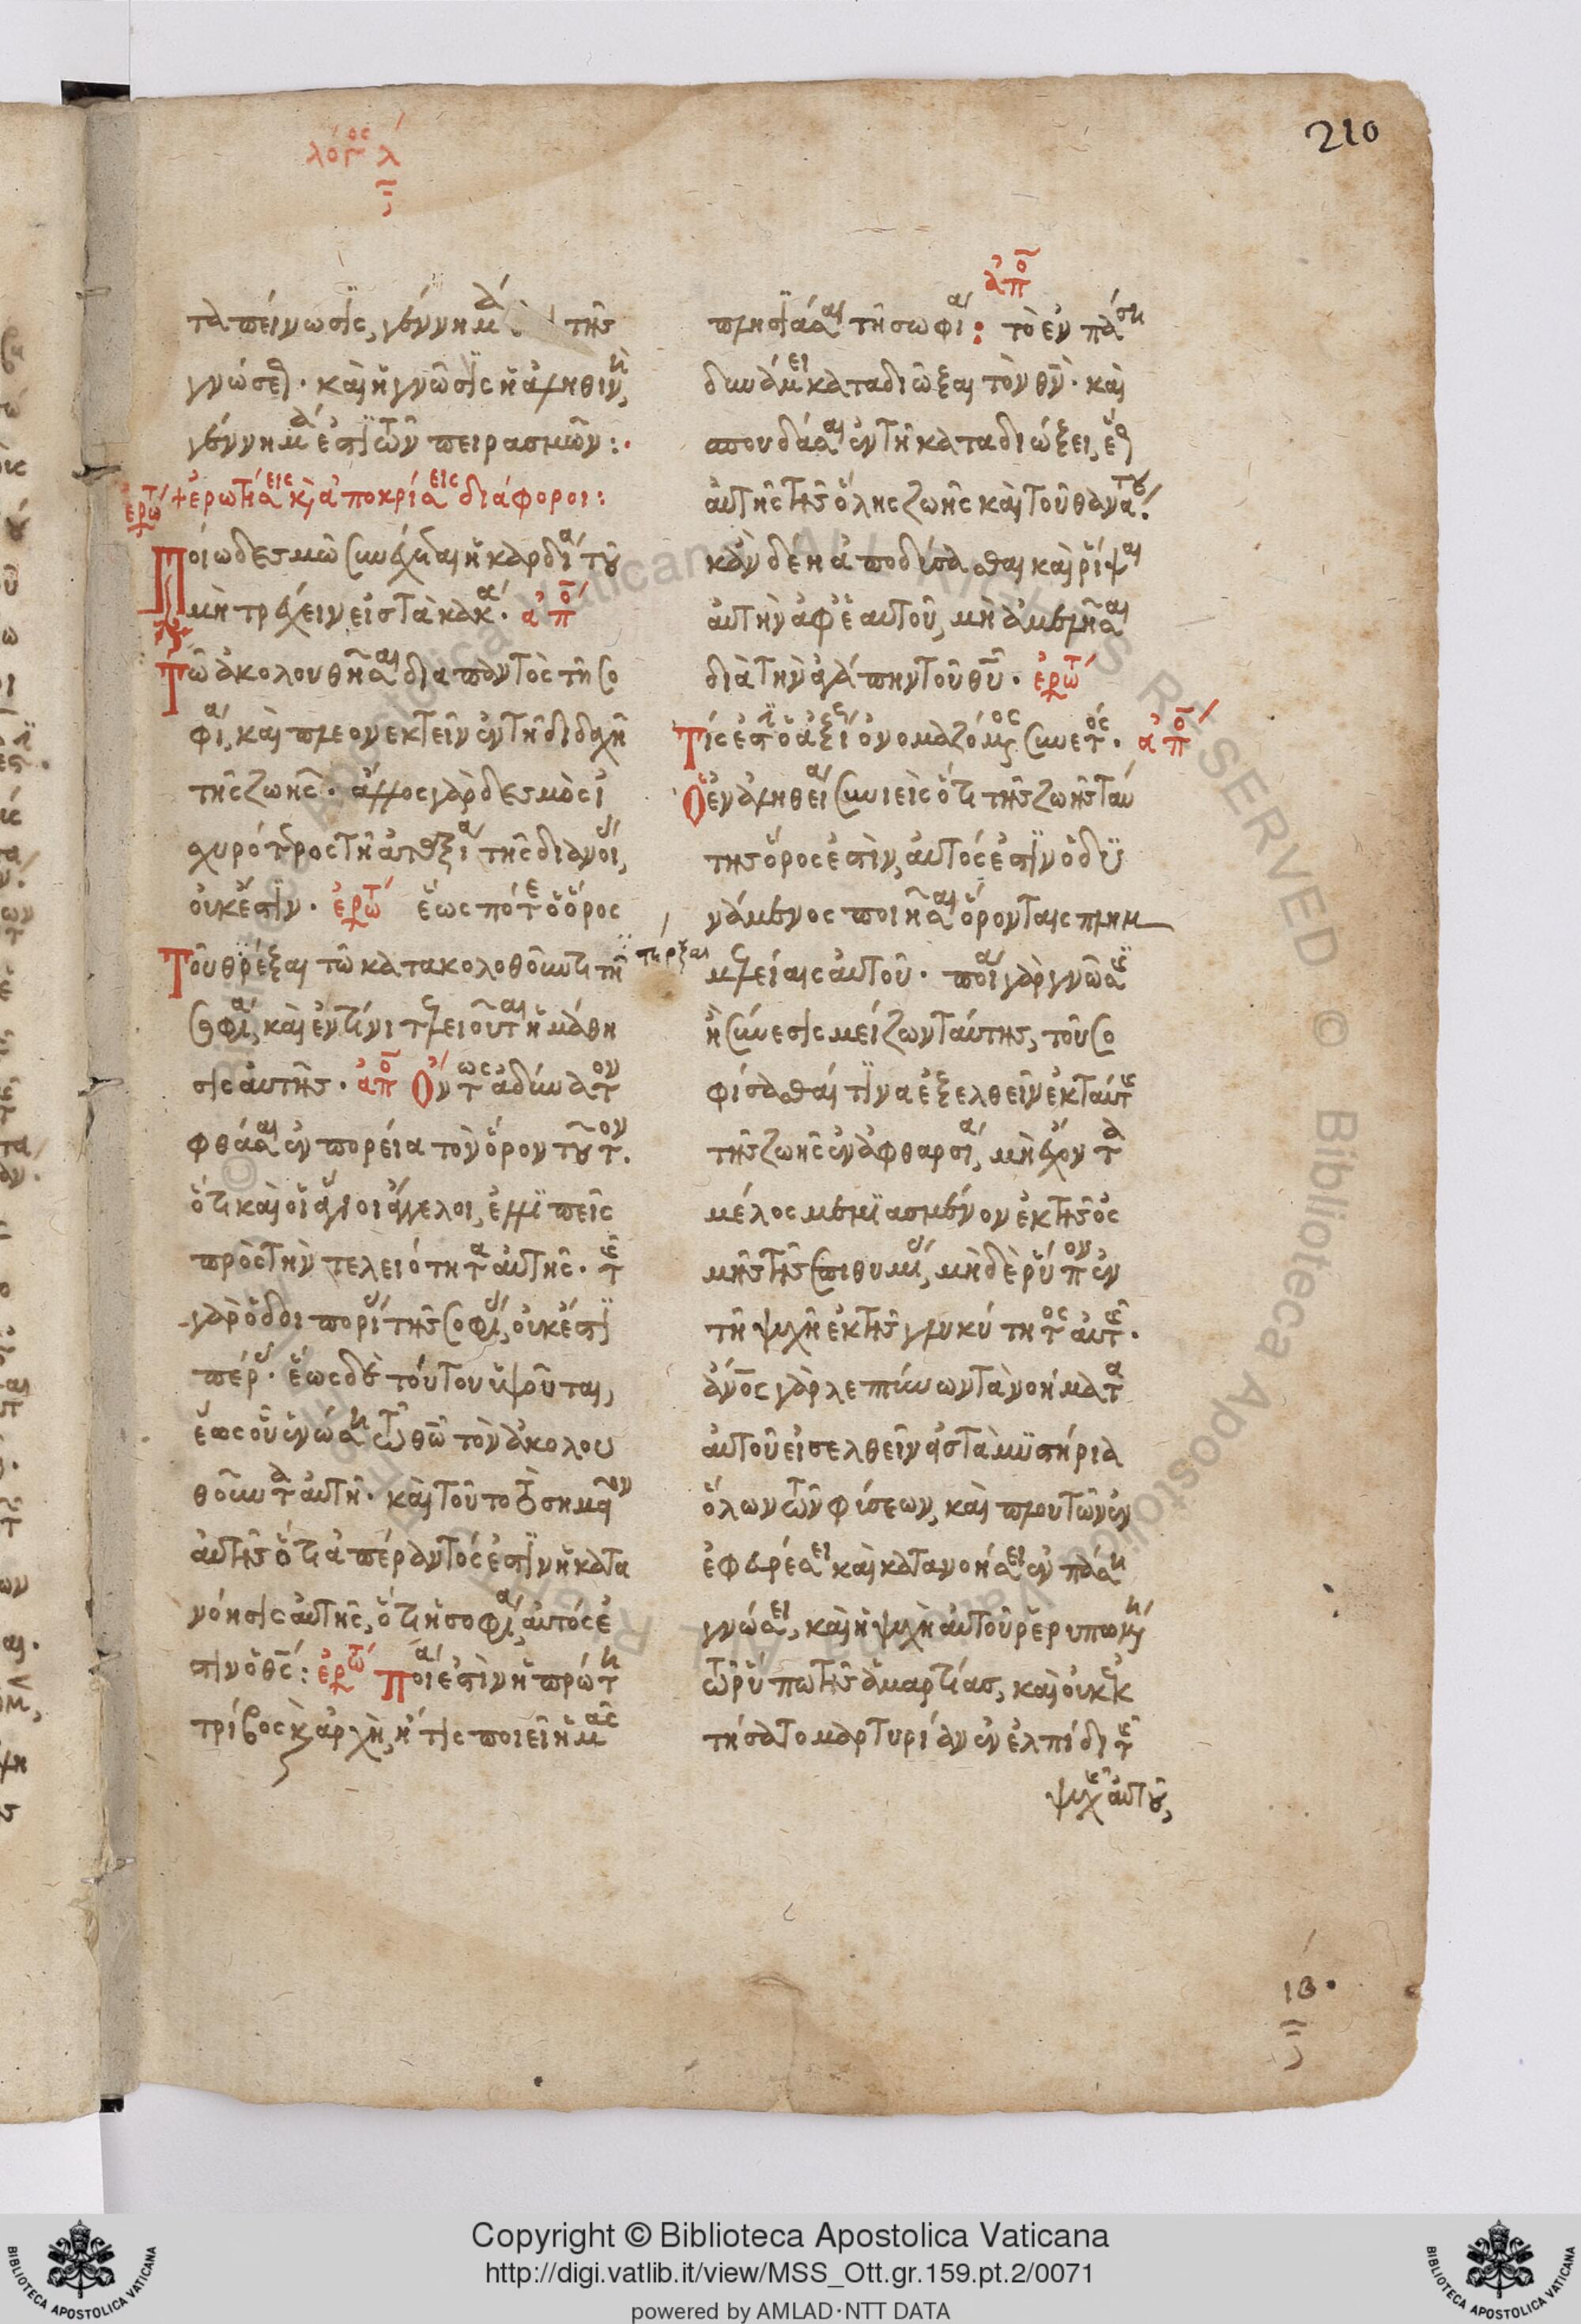 λόγος λ
210
ταπείνωσις, γέννημά τῆς
γνώσεως· καὶ ἡ γνῶσις ἡ ἀληθινὴ,
γέννημά ἐστι τῶν πειρασμῶν:·
ἐρωτ + ἐρωτήσεις καὶ ἀποκρίσεις διάφοροι:
Ποίω δεσμῶ συνέχεται ἡ καρδία τοῦ
μὴ τρέχειν εἰς τὰ κακά· ἀπό
Τῶ ἀκολουθῆσαι διαπαντὸς τῆ σο
φία, καὶ πλεονεκτεῖν ἐν τῆ διδαχῆ
τῆς ζωῆς· ἄλλος γὰρ δεσμὸς ἰ
σχυρότερος τῆ ἀταξία τῆς διανοίας,
οὐκ ἔστιν· ἐρωτ ἕως πότε ὁ ὅρος
Τοῦ θρέξαι τῶ κατακολοθοῦντι τῆ
σοφία, καὶ ἐν τίνι τελειοῦται ἡ μάθη
σις αὐτῆς· ἀπό Ὄντως ἀδύνατον
φθάσαι ἐν πορεία τὸν ὅρον τοῦτον.
ὅτι καὶ οἱ ἅγιοι ἄγγελοι, ἐλλιπεῖς
πρὸς τὴν τελειότητα αὐτῆς· τῆς
γὰρ ὁδοιπορίας τῆς σοφίας, οὐκ ἔστι
πέρας· ἕως δὲ τούτου ὑψοῦται,
ἕως οὗ ἑνώση τῶ θεῶ τὸν ἀκολου
θοῦντα αὐτῆ· καὶ τοῦτο τὸ σημεῖον
αὐτῆς ὅτι ἀπέραντός ἐστιν ἡ κατα
νόησις αὐτῆς, ὅτι ἡ σοφία, αὐτός ἐ
στιν ὁ θς: ἐρωτ ποία ἐστὶν ἡ πρώτη
τρίβος καὶ ἀρχὴ, ἥτις ποιεῖ ἡμᾶς
ἀπό
πλησιάσαι τῆ σωφία: τὸ ἐν πάση
δυνάμει καταδιῶξαι τὸν θν· καὶ
σπουδάσαι ἐν τῆ καταδιώξει, ἕως
αὐτῆς τῆς ὅλης ζωῆς καὶ τοῦ θανάτου·
κἂν δέη ἀποδύσασθαι καὶ ρίψαι
αὐτὴν ἀφ' ἑαυτοῦ, μὴ ἀμελῆσαι
διὰ τὴν ἀγάπην τοῦ θυ· ἐρωτ
Τίς ἐστιν ὁ ἀξίως ὀνομαζόμενος συνετός· ἀπό
Ὁ ἐν ἀληθεία συνιεὶς ὅτι τῆς ζωῆς ταύ
της ὅρος ἐστὶν, αὐτός ἐστιν ὁ δυ
νάμενος ποιῆσαι ὅρον ταῖς πλημ
μελείαις αὐτοῦ· ποία γὰρ γνῶσις
ἢ σύνεσις μείζων ταύτης, τοῦ σο
φίσασθαί τινα ἐξελθεῖν ἐκ ταύτης
τῆς ζωῆς ἐν ἀφθαρσία, μὴ ἔχοντα
μέλος μεμιασμένον ἐκ τῆς ὀς
μῆς τῆς ἐπιθυμίας, μὴ δὲ ρύπον ἐν
τῆ ψυχῆ ἐκ τῆς γλυκύτητος αὐτῆς·
ἄνος γὰρ λεπτύνων τὰ νοήματα
αὐτοῦ εἰσελθεῖν εἰς τὰ μυστήρια
ὅλων τῶν φύσεων, καὶ πλουτῶν ἐν
ἐφευρέσει καὶ κατανοήσει ἐν πάση
γνώσει, καὶ ἡ ψυχὴ αὐτοῦ ρερυπωμένη
τῶ ρύπω τῆς ἁμαρτίας, καὶ οὐκ ἐκ
τήσατο μαρτυρίαν ἐν ἐλπίδι τῆς
ψυχῆς αὐτοῦ,
ιβ·
Copyright © Biblioteca Apostolica Vaticana
http://digi.vatlib.it/view/MSS_Ott.gr.159.pt.2/0071
powered by AMLAD·NTT DATA